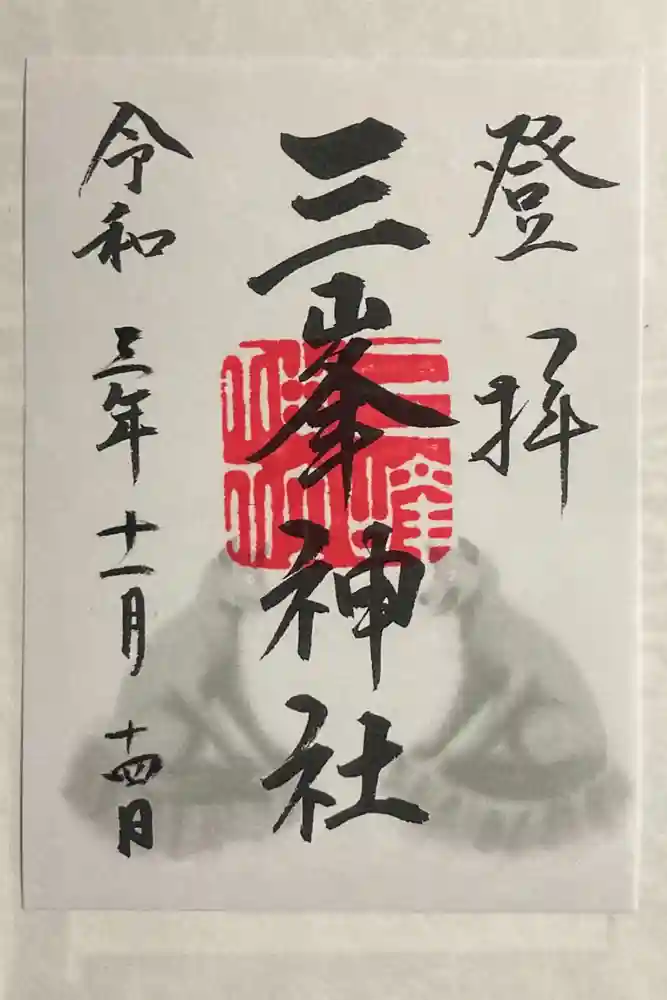 登拝
三峯神社
三峯神社
令和三年十一月十四日